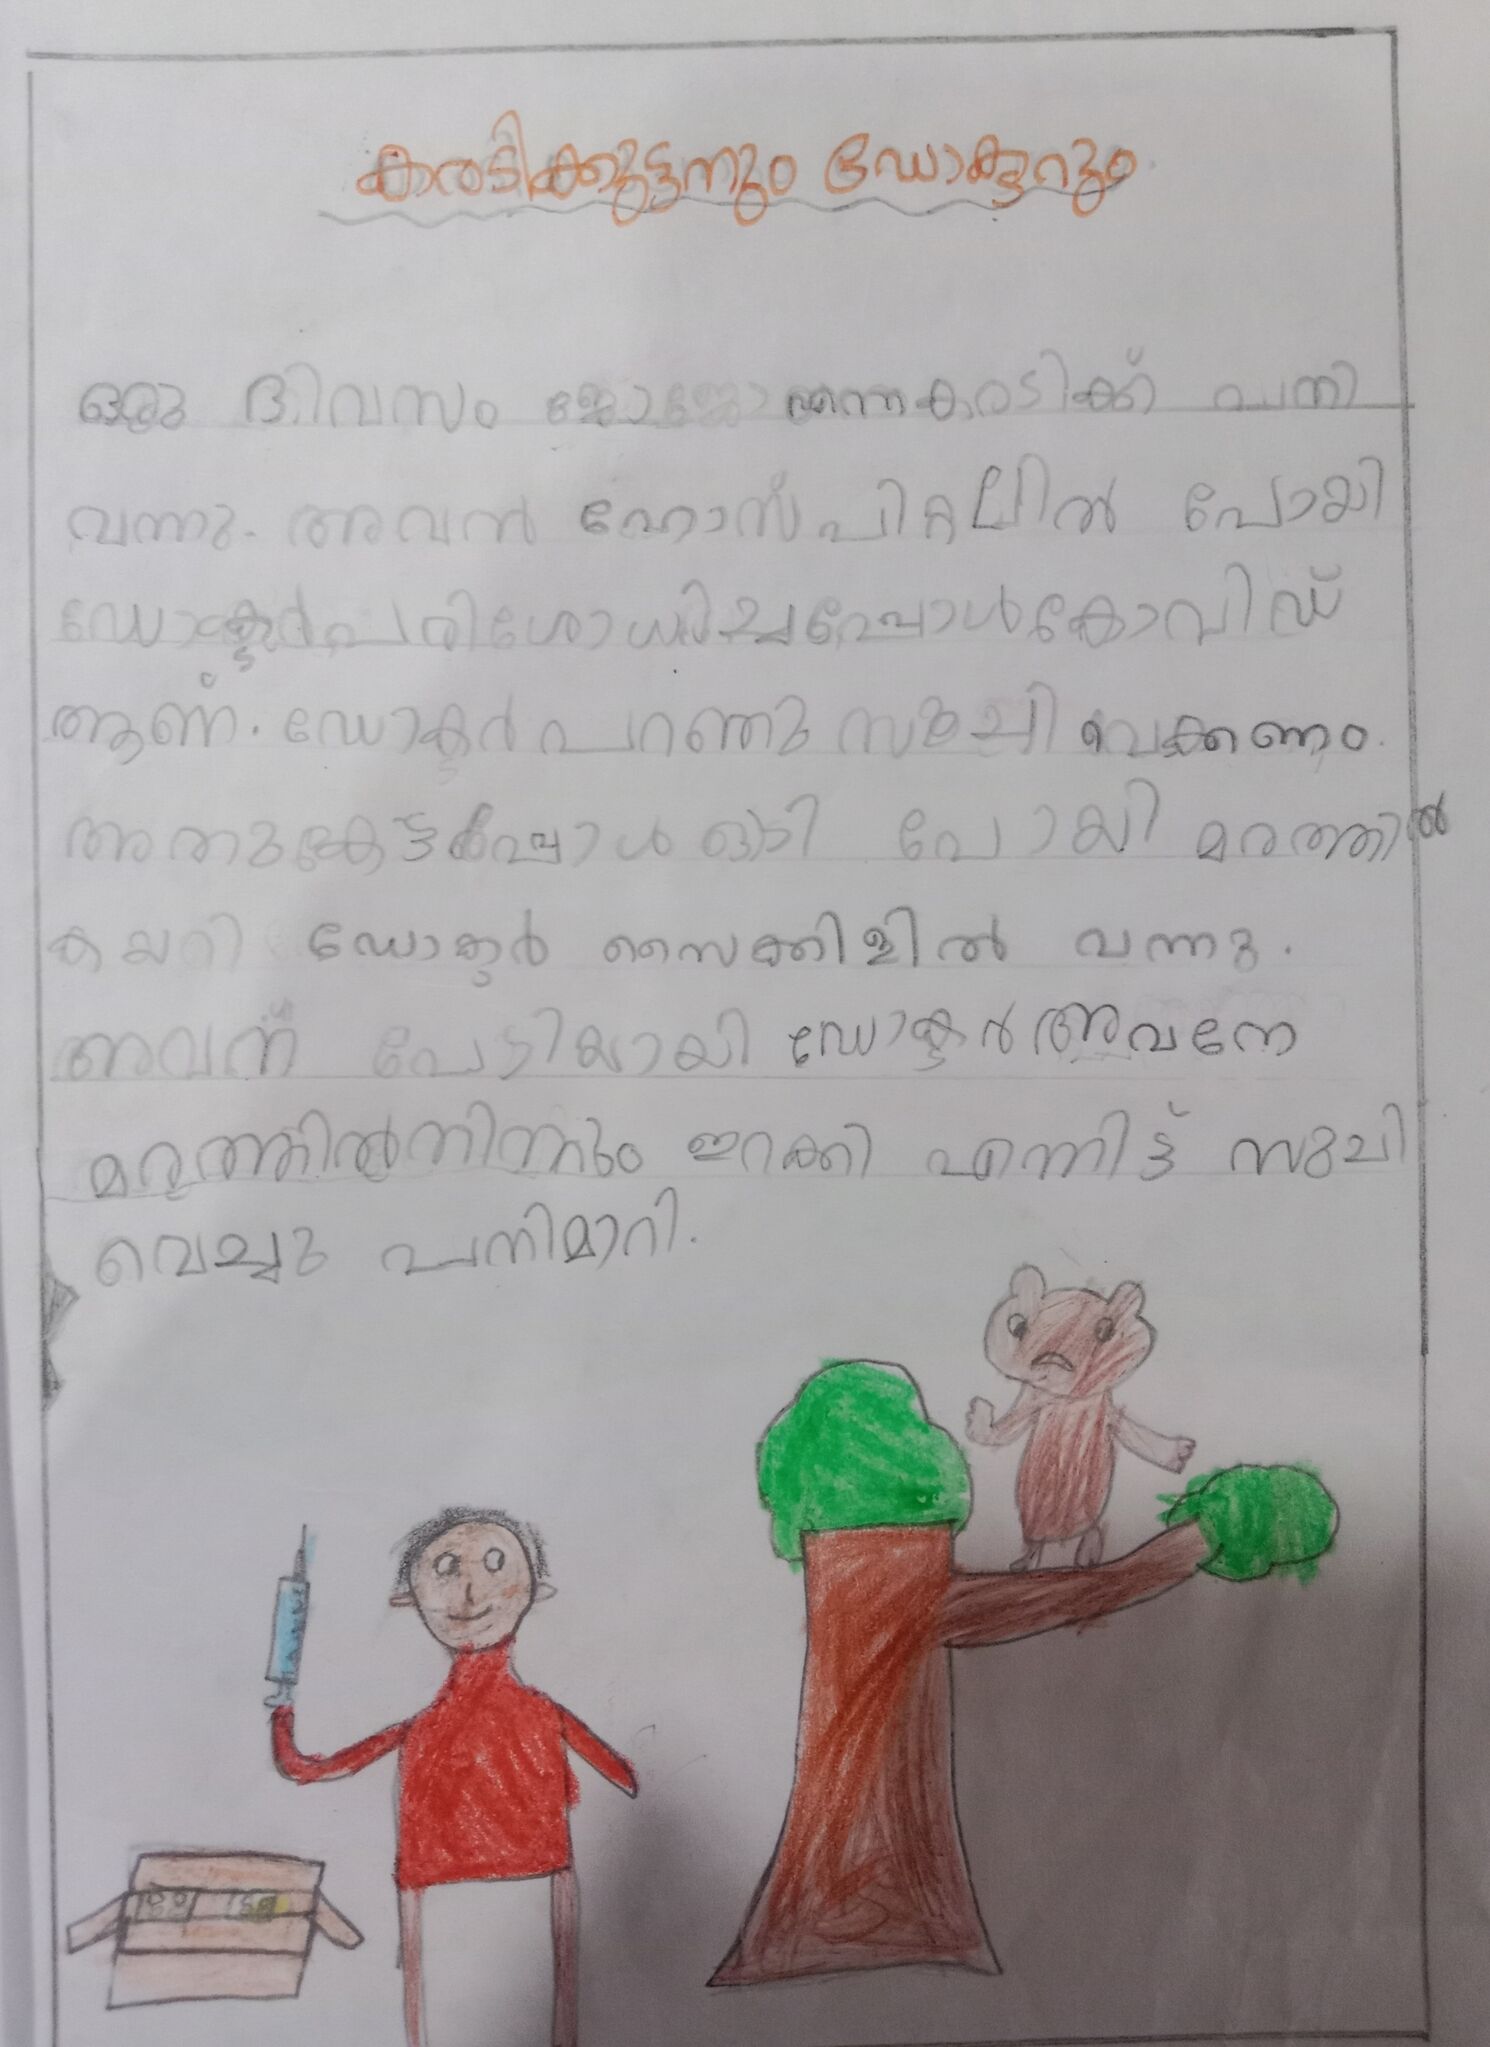 കരടിക്കുട്ടനും ഡോക്ടറും
ഒരു ദിവസം ജോജോ എന്ന കരടിക്ക് പനി
വന്നു. അവൻ ഹോസ്പിറ്റലിൽ പോയി
ഡോക്ടർ പരിശോധിച്ചപ്പോൾ കോവിഡ്
ആണ്. ഡോക്ടർ പറഞ്ഞു സൂചി വെക്കണം.
അതുകേട്ടപ്പോൾ ഓടി പോയി മരത്തിൽ
കയറി ഡോക്ടർ സൈക്കിളിൽ വന്നു.
അവന് പേടിയായി ഡോക്ടർ അവനേ
മരത്തിൽനിന്നും ഇറക്കി എന്നിട്ട് സൂചി
വെച്ചു പനിമാറി.